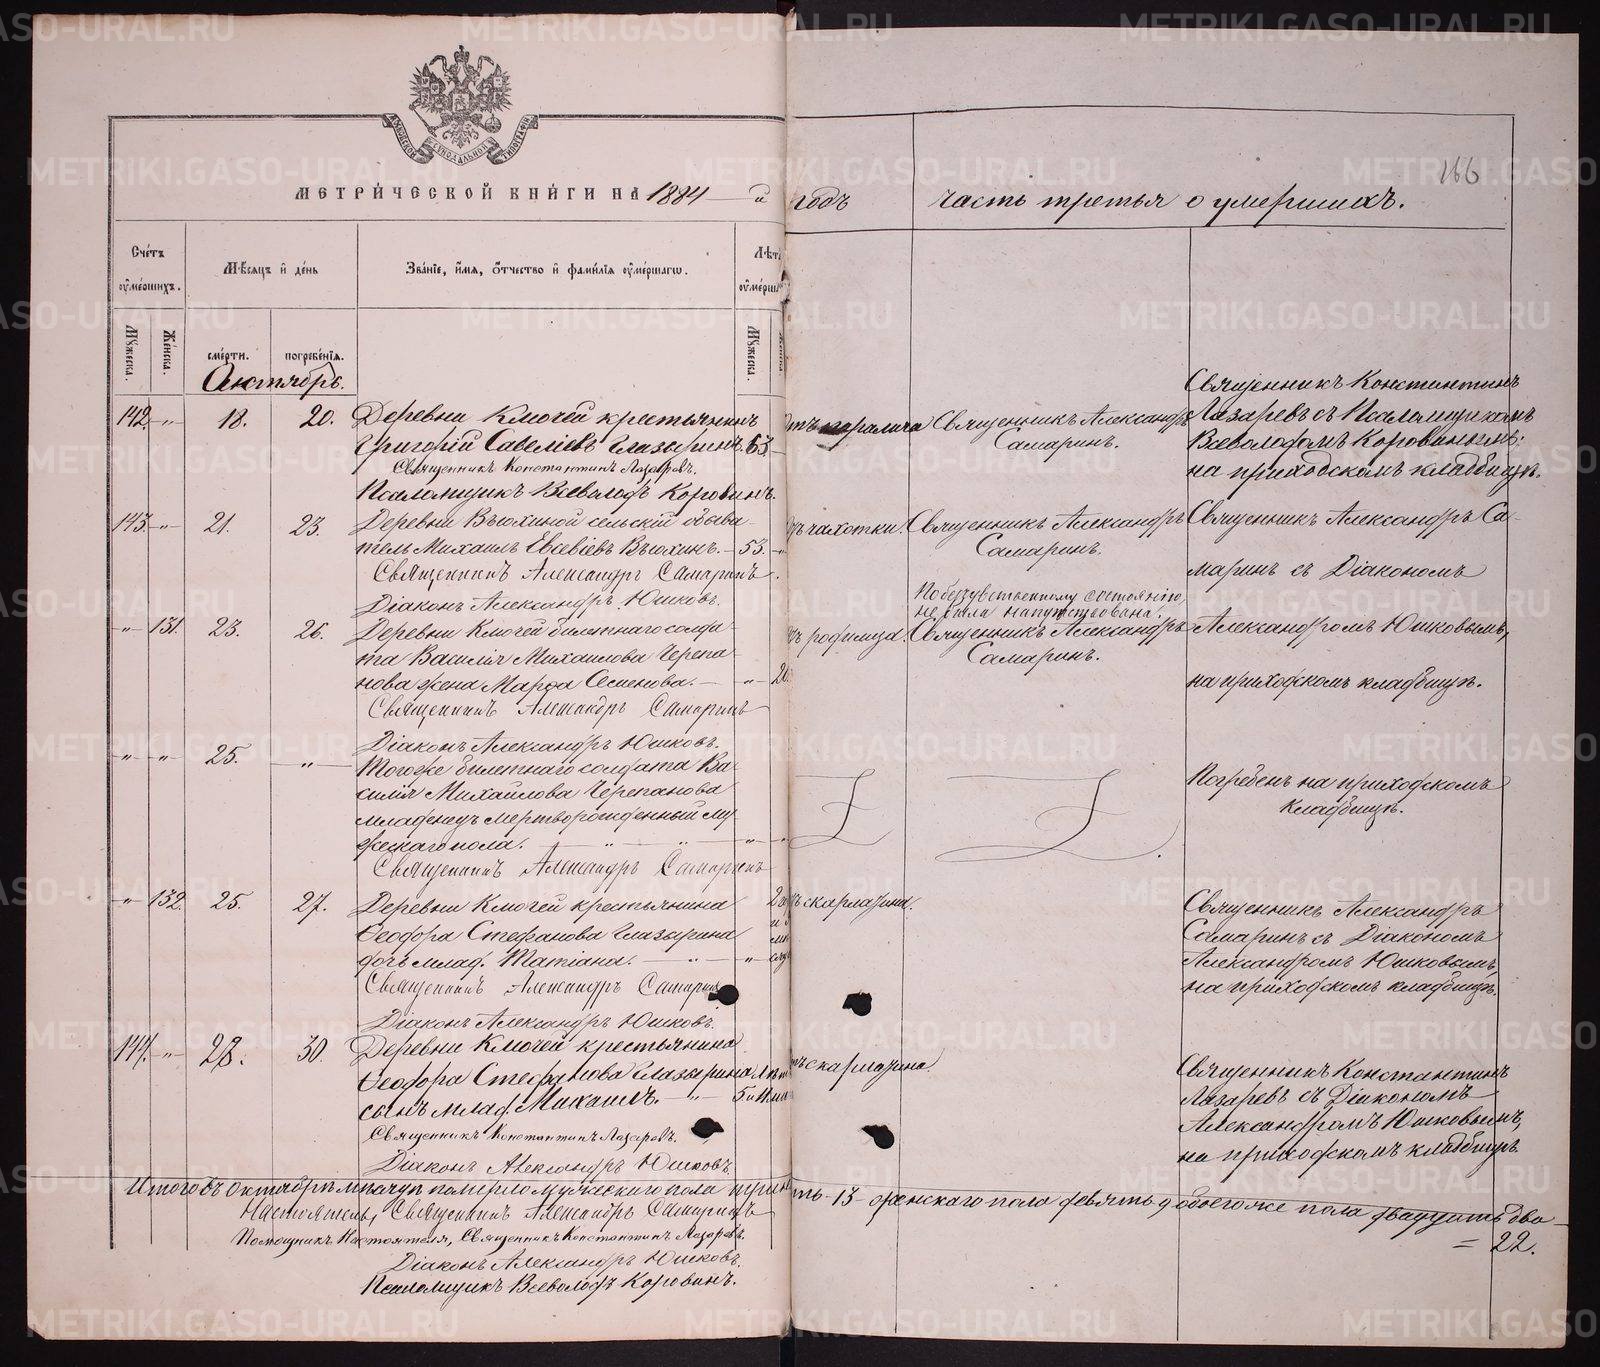 МЕТРИ́ЧЕСКОЙ КНИ́ГИ НА 1884 й годъ
часть третья о умершихъ.
166
Сче́тъ оу҆ме́ршихъ.
Му́жеска.
Же́нска.
Мѣ́сяцъ и҆ де́нь
сме́рти.
погребе́нїя.
Зва́нїе, и҆́мя, ѻ҆́тчество и҆ фами́лїя оу҆ме́ршагѡ.
Му́жеска.
Октябрь.
142. " 18. 20. Деревни Ключей крестьянинъ
Григорій Савеліевъ Глазыринъ. 63. -
Священникъ Константинъ Лазаревъ.
Псаломщикъ Всеволодъ Коровинъ.
отъ паралича
Священникъ Александръ
Самаринъ.
Священникъ Константинъ
Лазаревъ съ Псаломщикомъ
Всеволодомъ Коровинымъ:
на приходскомъ кладбищѣ.
143. " 21. 23. Деревни Вьюхиной сельскій обыва-
тель Михаилъ Евсевіевъ Вьюхинъ. - 53. "
Священникъ Александръ Самаринъ.
Діаконъ Александръ Юшковъ.
чахотки.
Священникъ Александръ
Самаринъ.
Священникъ Александръ Са-
маринъ съ Діакономъ
" 131. 23. 26. Деревни Ключей билетнаго солда-
та Василія Михаилова Черепа-
нова жена Марѳа Семенова. - "
Священникъ Александръ Самаринъ
Діаконъ Александръ Юшковъ.
родимца.
По безчувственному состоянію,
не была напутствована.
Священникъ Александръ
Самаринъ.
Александромъ Юшковымъ,
на приходскомъ кладбищѣ.
" " 25. " Тогоже билетнаго солдата Ва-
силія Михаилова Черепанова
младенецъ мертворожденный му-
жескаго пола. " " "
Священникъ Александръ Самаринъ
Погребенъ на приходскомъ
кладбищѣ.
" 132. 25. 27. Деревни Ключей крестьянина
Ѳеодора Стефанова Глазырина
дочь млад. Татіана. - " - "
Священникъ Александръ Самаринъ
Діаконъ Александръ Юшковъ.
скарлатина.
Священникъ Александръ
Самаринъ съ Діакономъ
Александромъ Юшковымъ,
на приходскомъ кладбищѣ.
144. " 28. 30. Деревни Ключей крестьянина
Ѳеодора Стефанова Глазырина
сынъ млад. Михаилъ. - " -
Священникъ Константинъ Лазаревъ.
Діаконъ Александръ Юшковъ
скарлатина.
Священникъ Константинъ
Лазаревъ съ Діакономъ
Александромъ Юшковымъ,
на приходскомъ кладбищѣ.
Итого въ Октябрѣ мѣсяцѣ померло мужескаго пола 13 женскаго пола девять 9 обоегоже пола двадцать два
= 22.
Настоятель, Священникъ Александръ Самаринъ
Помощникъ Настоятеля, Священникъ Константинъ Лазаревъ.
Діаконъ Александръ Юшковъ.
Псаломщикъ Всеволодъ Коровинъ.